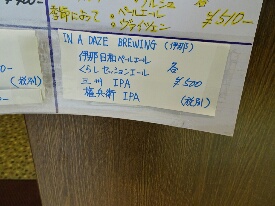 季節によって
・ペールエール
・ヴァイツェン
¥510-
IN A DAZE BREWING (伊那)
伊那日和ペールエール 各
くらしセッションエール
三州 IPA ¥500
権兵衛 IPA (税別)
(税別)